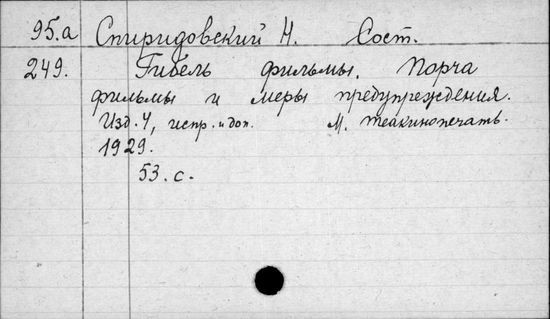 95.а Спиридовский Н. Сост.
249. Гибель фильмы. Порча
фильмы и меры предупреждения.
Изд. 4, испр. и доп. М. теакинопечать.
1929.
53. с.